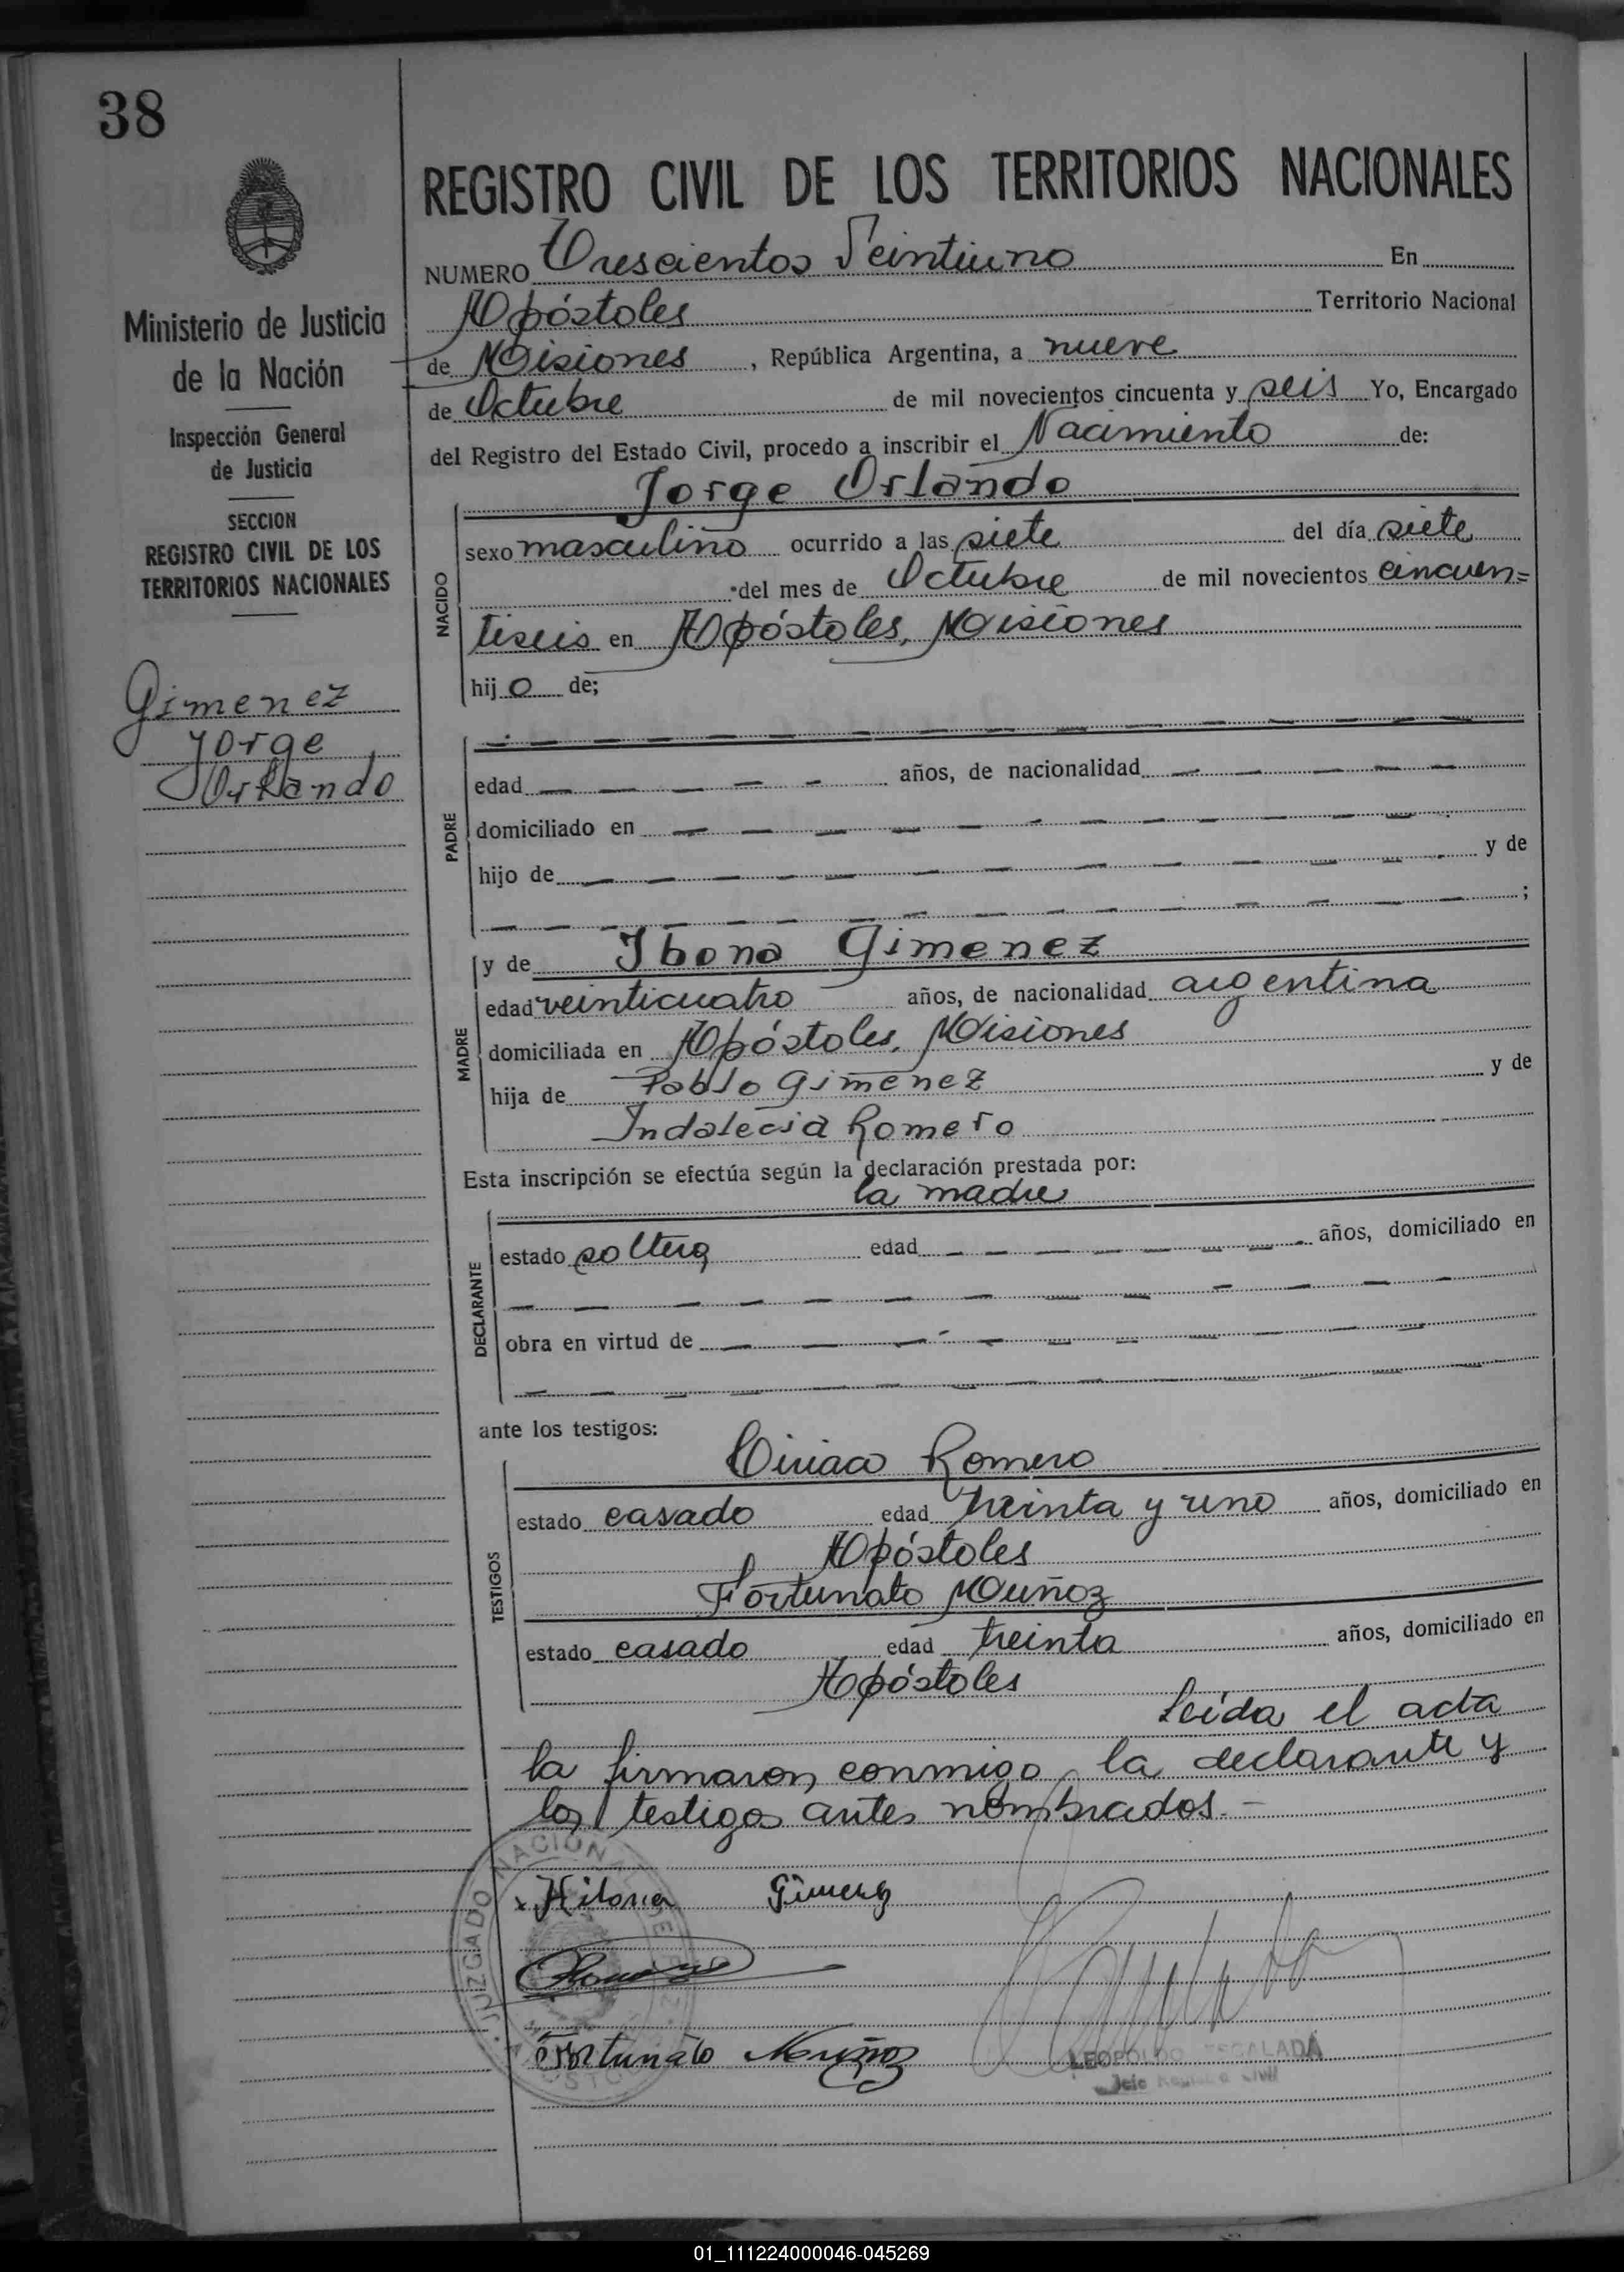 38
REGISTRO CIVIL DE LOS TERRITORIOS NACIONALES
Ministerio de Justicia
de la Nación
Inspección General
de Justicia
SECCION
REGISTRO CIVIL DE LOS
TERRITORIOS NACIONALES
Gimenez
Jorge
Orlando
NUMERO Trescientos Veintiuno En
Apóstoles Territorio Nacional
de Misiones, República Argentina, a nueve
de Octubre de mil novecientos cincuenta y seis Yo, Encargado
del Registro del Estado Civil, procedo a inscribir el Nacimiento de:
NACIDO
Jorge Orlando
sexo masculino ocurrido a las siete del día siete
del mes de Octubre de mil novecientos cincuen=
tiseis en Apóstoles, Misiones
hijo de;
PADRE
edad años, de nacionalidad
domiciliado en
hijo de y de
;
MADRE
y de Ibona Gimenez
edad veinticuatro años, de nacionalidad argentina
domiciliada en Apóstoles, Misiones
hija de Pablo Gimenez y de
Indalecia Romero
Esta inscripción se efectúa según la declaración prestada por:
la madre
DECLARANTE
estado soltera edad años, domiciliado en
obra en virtud de
ante los testigos:
TESTIGOS
Ciriaco Romero
estado casado edad treinta y uno años, domiciliado en
Apóstoles
Fortunato Muñoz
estado casado edad treinta años, domiciliado en
Apóstoles
Leída el acta
la firmaron conmigo, la declarante y
los testigos antes nombrados.-
JUZGADO NACIONAL DE PAZ
Gimenez
Fortunato Muñoz
LEOPOLDO ESCALADA
Jefe Registro Civil
01_111224000046-045269